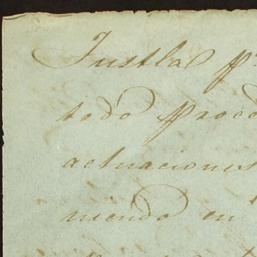 Tustla p
todo proce
actuaciones
niendo en